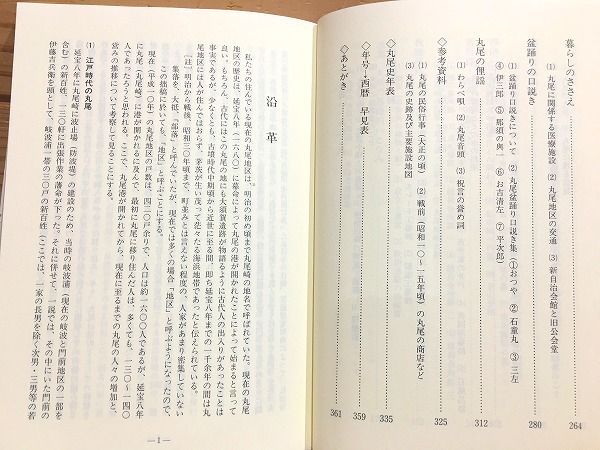 暮らしのささえ……264
(1) 丸尾に関係する医療施設 (2) 丸尾地区の交通 (3) 新自治会館と旧公会堂
盆踊りの口説き……280
(1) 盆踊り口説きについて (2) 丸尾盆踊り口説き集(①おつや ② 石童丸 ③ 三左
④ 伊三郎 ⑤ 那須の與一 ⑥ お吉清左 ⑦ 平次郎)
丸尾の俚謡……312
(1) わらべ唄 (2) 丸尾音頭 (3) 祝言の誉め詞
◇参考資料……325
(1) 丸尾の民俗行事(大正の頃) (2) 戦前(昭和一〇〜一五年頃)の丸尾の商店など
(3) 丸尾の史跡及び主要施設地図
◇丸尾史年表……335
◇年号→西暦 早見表……359
◇あとがき……361
沿 革
私たちの住んでいる現在の丸尾地区は、明治の初め頃まで丸尾崎の地名で呼ばれていた。現在の丸尾
地区の歴史は、延宝八年(一六八〇)に幕命によって丸尾の港が開かれたことによって始まると言って
良い。もちろん、古代にはこの丸尾の地にも大須賀遺跡が物語るように古代人の出入りがあったことは
事実であるが、少なくとも、古墳時代中期頃から近世に至る間、即ち延宝八年までの一千余年の間は丸
尾地区には人が住んではおらず、茅茨が生い茂って茫々たる海浜地帯であったと伝えられている。
〔註〕明治から戦後、昭和三〇年頃まで、町並みとは言えない程度の、人家があまり密集していない
集落を、大抵「部落」と呼んでいたが、現在では多くの場合「地区」と呼ぶようになったので、
この拙稿に於いても、「地区」と呼ぶことにする。
現在(平成一〇年)の丸尾地区の戸数は、四三〇戸余りで、人口は約一六〇〇人であるが、延宝八年
に丸尾(丸尾崎)に港が開かれるに及んで、最初に丸尾に移り住んだ人は、多くても、一三〇〜一四〇
人であったろうと思われる。ここで、丸尾港が開かれてから、現在に至るまでの丸尾の人々の増加と、
営みの推移について考察して見ることにする。
(1) 江戸時代の丸尾
延宝八年に丸尾崎に波止場(防波堤)の建設のため、当時の岐波浦(現在の岐波と門前地区の一部を
含む)の新百姓、一三〇軒に出張作業の藩命が下った。それに併せて、一説では、その中にいた門前の
伊藤吉兵衛を頭として、岐波浦一帯の三〇戸の新百姓(ここでは、一家の長男を除く次男・三男等の若
— 1 —